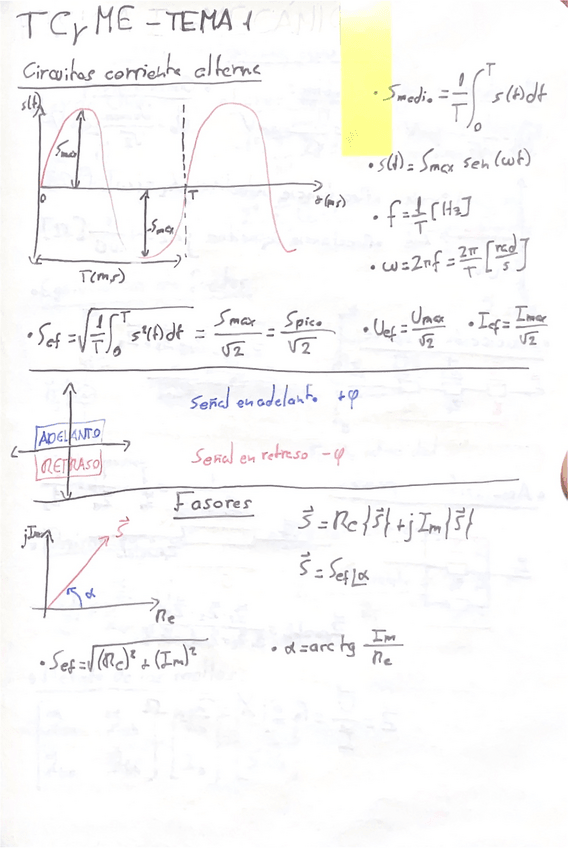 TCyME - TEMA 1
Circuitos corriente alterna
s(t)
Smax
0
T
t(ms)
-Smax
T(ms)
· Smedio = 1/T ∫₀ᵀ s(t)dt
· s(t) = Smax sen(ωt)
· f = 1/T [Hz]
· ω = 2πf = 2π/T [rad/s]
· Sef = √(1/T ∫₀ᵀ s²(t)dt) = Smax/√2 = Spico/√2
· Uef = Umax/√2 · Ief = Imax/√2
ADELANTO
RETRASO
Señal en adelanto +φ
Señal en retraso -φ
Fasores
jIm
S⃗
α
Re
S⃗ = Re{S⃗} + jIm{S⃗}
S⃗ = Sef∠α
· Sef = √((Re)² + (Im)²)
· α = arc tg Im/Re